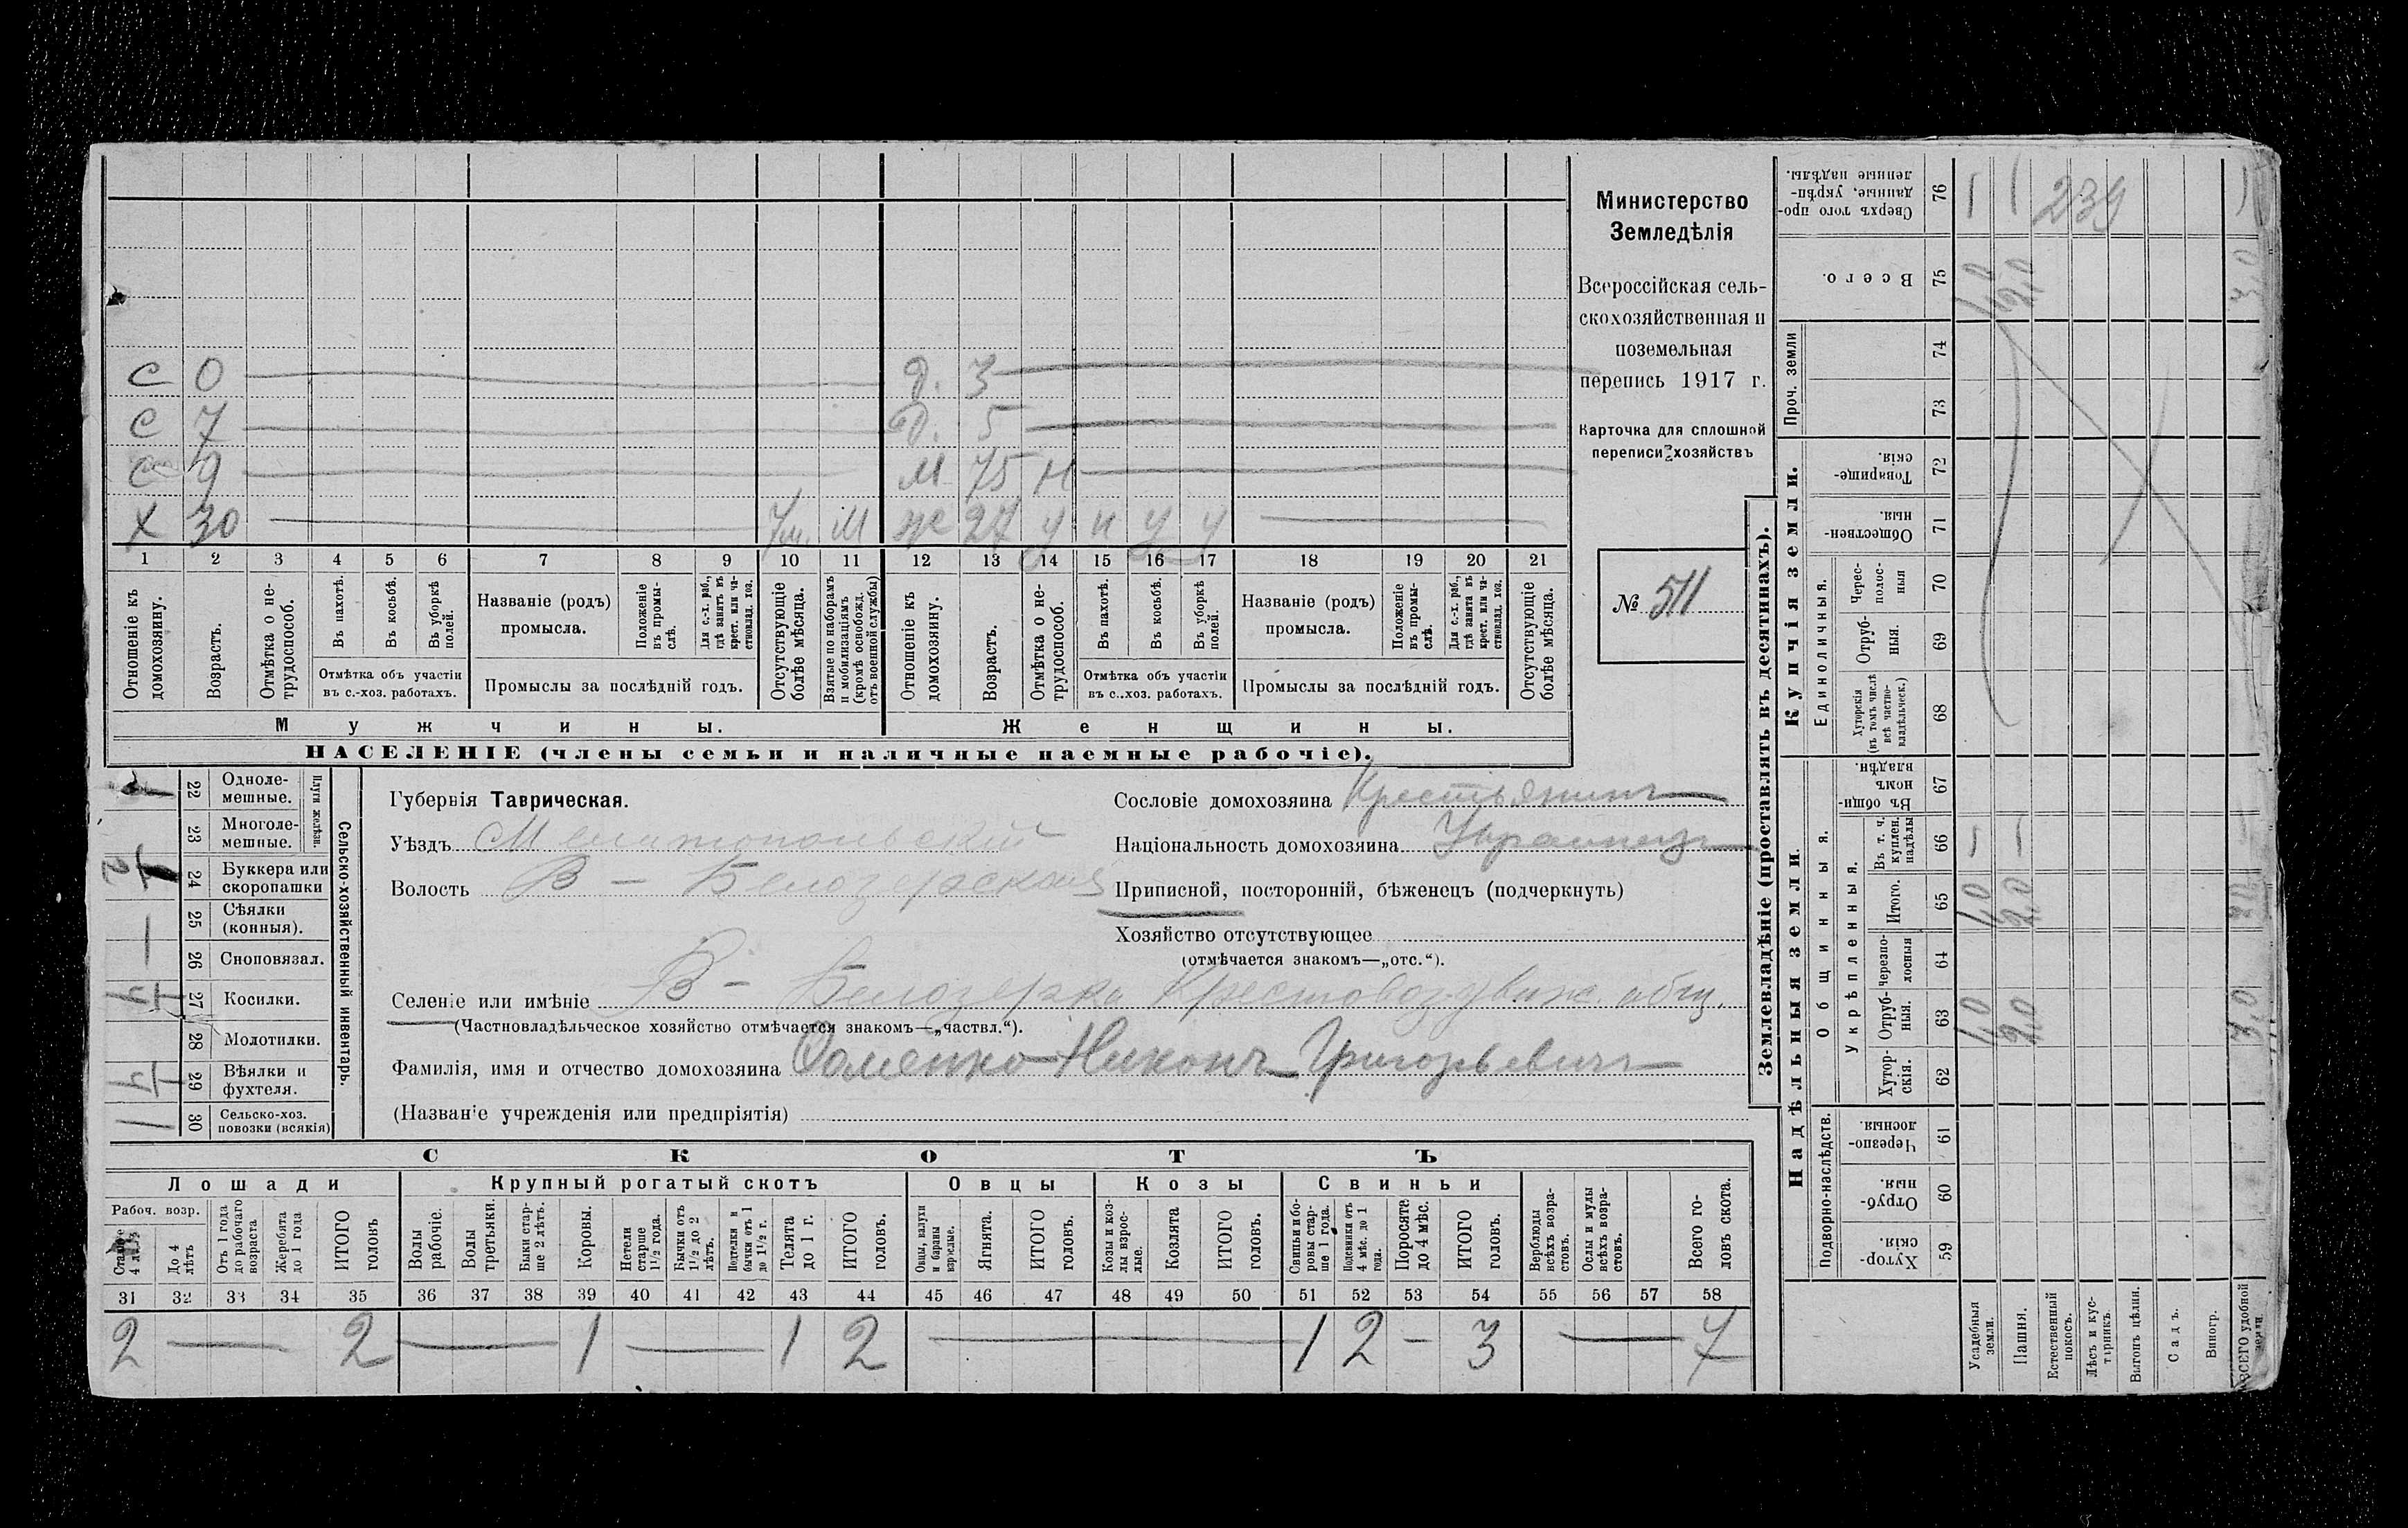 С 0 — Д. 3 —
С 7 — Д. 5 —
С 9 — М 75 Н —
Х 30 — 7м. М Ж 27 у н у у —
1 2 3 4 5 6 7 8 9 10 11 12 13 14 15 16 17 18 19 20 21
Отношеніе къ домохозяину.
Возрастъ.
Отмѣтка о не-
трудоспособ.
Въ пахотѣ.
Въ косьбѣ.
Въ уборкѣ полей.
Отмѣтка объ участіи
въ с.-хоз. работахъ.
Названіе (родъ)
промысла.
Положеніе
въ промы-
слѣ.
Для с.-х. раб.,
гдѣ занятъ въ
крест. или ча-
стновлад. хоз.
Промыслы за послѣдній годъ.
Отсутствующіе
болѣе мѣсяца.
Взятые по наборамъ
и мобилизаціямъ
(кромѣ освобожд.
отъ военной службы)
Отношеніе къ
домохозяину.
Возрастъ.
Отмѣтка о не-
трудоспособ.
Въ пахотѣ.
Въ косьбѣ.
Въ уборкѣ
полей.
Отмѣтка объ участіи
въ с..хоз. работахъ.
Названіе (родъ)
промысла.
Положеніе
въ промы-
слѣ.
Для с.-х. раб.,
гдѣ занята въ
крест. или ча-
стновлад. хоз.
Промыслы за послѣдній годъ.
Отсутствующіе
болѣе мѣсяца.
Мужчины.
Женщины.
НАСЕЛЕНІЕ (члены семьи и наличные наемные рабочіе).
Министерство
Земледѣлія
Всероссійская сель-
скохозяйственная и
поземельная
перепись 1917 г.
Карточка для сплошной
переписи хозяйствъ
№ 511
Сельско-хозяйственный инвентарь.
Плуги желѣзн.
22 Одноле-
мешные.
23 Многоле-
мешные.
24 Буккера или
скоропашки
25 Сѣялки
(конныя).
26 Сноповязал.
27 Косилки.
28 Молотилки.
29 Вѣялки и
фухтеля.
30 Сельско-хоз.
повозки (всякія)
Губернія Таврическая.
Уѣздъ Мелитопольскій
Волость В - Белозерская
Сословіе домохозяина Крестьянинъ
Національность домохозяина Украинецъ
Приписной, посторонній, бѣженецъ (подчеркнуть)
Хозяйство отсутствующее
(отмѣчается знакомъ—„отс.“).
Селеніе или имѣніе В - Белозерка Крестовоздвиж. общ.
(Частновладѣльческое хозяйство отмѣчается знакомъ—„частвл.“).
Фамилія, имя и отчество домохозяина Фоменко Никонъ Григорьевичъ
(Названіе учрежденія или предпріятія)
СКОТЪ
Лошади
Рабоч. возр.
Старше
4 лѣтъ
До 4
лѣтъ
Отъ 1 года
до рабочаго
возраста
Жеребята
до 1 года
ИТОГО
головъ
Крупный рогатый скотъ
Волы
рабочіе.
Волы
третьяки.
Быки стар-
ше 2 лѣтъ.
Коровы.
Нетели
старше
1½ года.
Бычки отъ
1½ до 2
лѣтъ.
Подтелки и
бычки отъ 1
до 1½ г.
Телята
до 1 г.
ИТОГО
головъ.
Овцы
Овцы, валухи
и бараны
взрослые.
Ягнята.
ИТОГО
головъ.
Козы
Козы и коз-
лы взрос-
лые.
Козлята
ИТОГО
головъ.
Свиньи
Свиньи и бо-
ровы стар-
ше 1 года.
Подсвинки отъ
4 мѣс. до 1
года.
Поросята
до 4 мѣс.
ИТОГО
головъ.
Верблюды
всѣхъ возра-
стовъ.
Ослы и мулы
всѣхъ возра-
стовъ.
Всего го-
ловъ скота.
31 32 33 34 35 36 37 38 39 40 41 42 43 44 45 46 47 48 49 50 51 52 53 54 55 56 57 58
2 — 2 — 1 — 1 2 — 1 2 — 3 — 7
Землевладѣніе (проставлять въ десятинахъ).
Купчія земли.
Надѣльныя земли.
Сверхъ того про-
данные, укрѣп-
ленные надѣлы.
76 239
Всего.
75 1,0 2,0 3,0
Проч. земли
74
73
Товарище-
скія.
72
Обществен-
ныя.
71
Единоличныя.
Черес-
полос-
ныя
70
Отруб-
ныя.
69
Хуторскія
(въ томъ числѣ
всѣ частно-
владѣльческ.)
68
Общинныя.
Въ общи-
номъ
владѣн.
67
Укрѣпленныя.
Въ т. ч.
куплен.
надѣлы
66 — —
Итого.
65 1,0 2,0
черезпо-
лосныя
64
Отруб-
ныя.
63 1,0 2,0 3,0
Хутор-
скія.
62
Подворно-наслѣдств.
Черезпо-
лосныя.
61
Отруб-
ныя.
60
Хутор-
скія.
59
Усадебныя
земли.
Пашня.
Естественный
покосъ.
Лѣсъ и кус-
тарникъ.
Выгонъ цѣлин.
Садъ.
Виногр.
ВСЕГО удобной
земли.